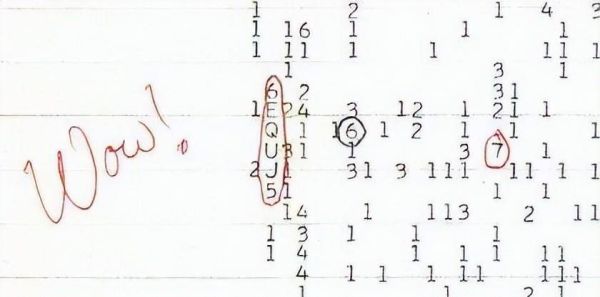 1 2 1 4 3
1 16 1 1 1
1 11 1 1 11 1
1 3 1
6 2 31
1 E 24 3 12 1 21 1
Wow!
Q 1 16 1 2 1 1 1
U 31 1 3 7 1
2 J 1 31 3 111 11 1 1
5 1 1 1
14 1 113 2 11
1 3 1 1 1
1 4 1 1 11
4 1 1 1 11 111 1
1 1 2 1